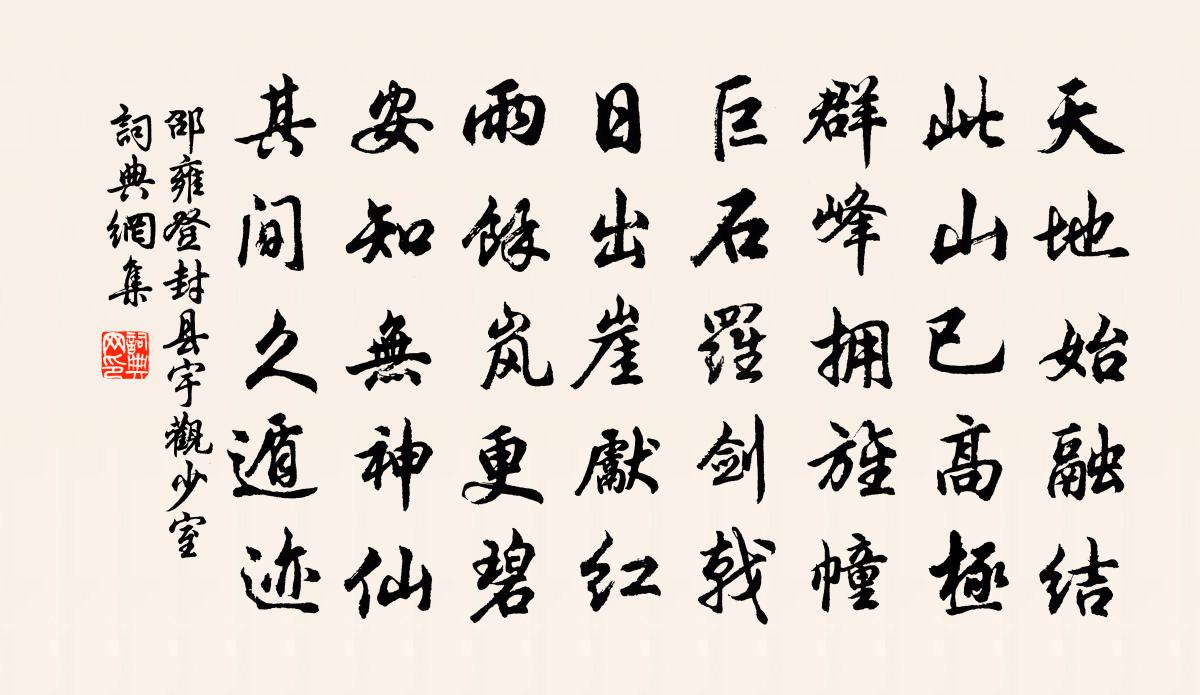 天地始融结
此山已高極
群峰拥旌幢
巨石羅劍戟
日出崖獻红
雨餘岚更碧
安知無神仙
其间久遁迹
邵雍登封县宇觀少室
詞典網集
詞典网印